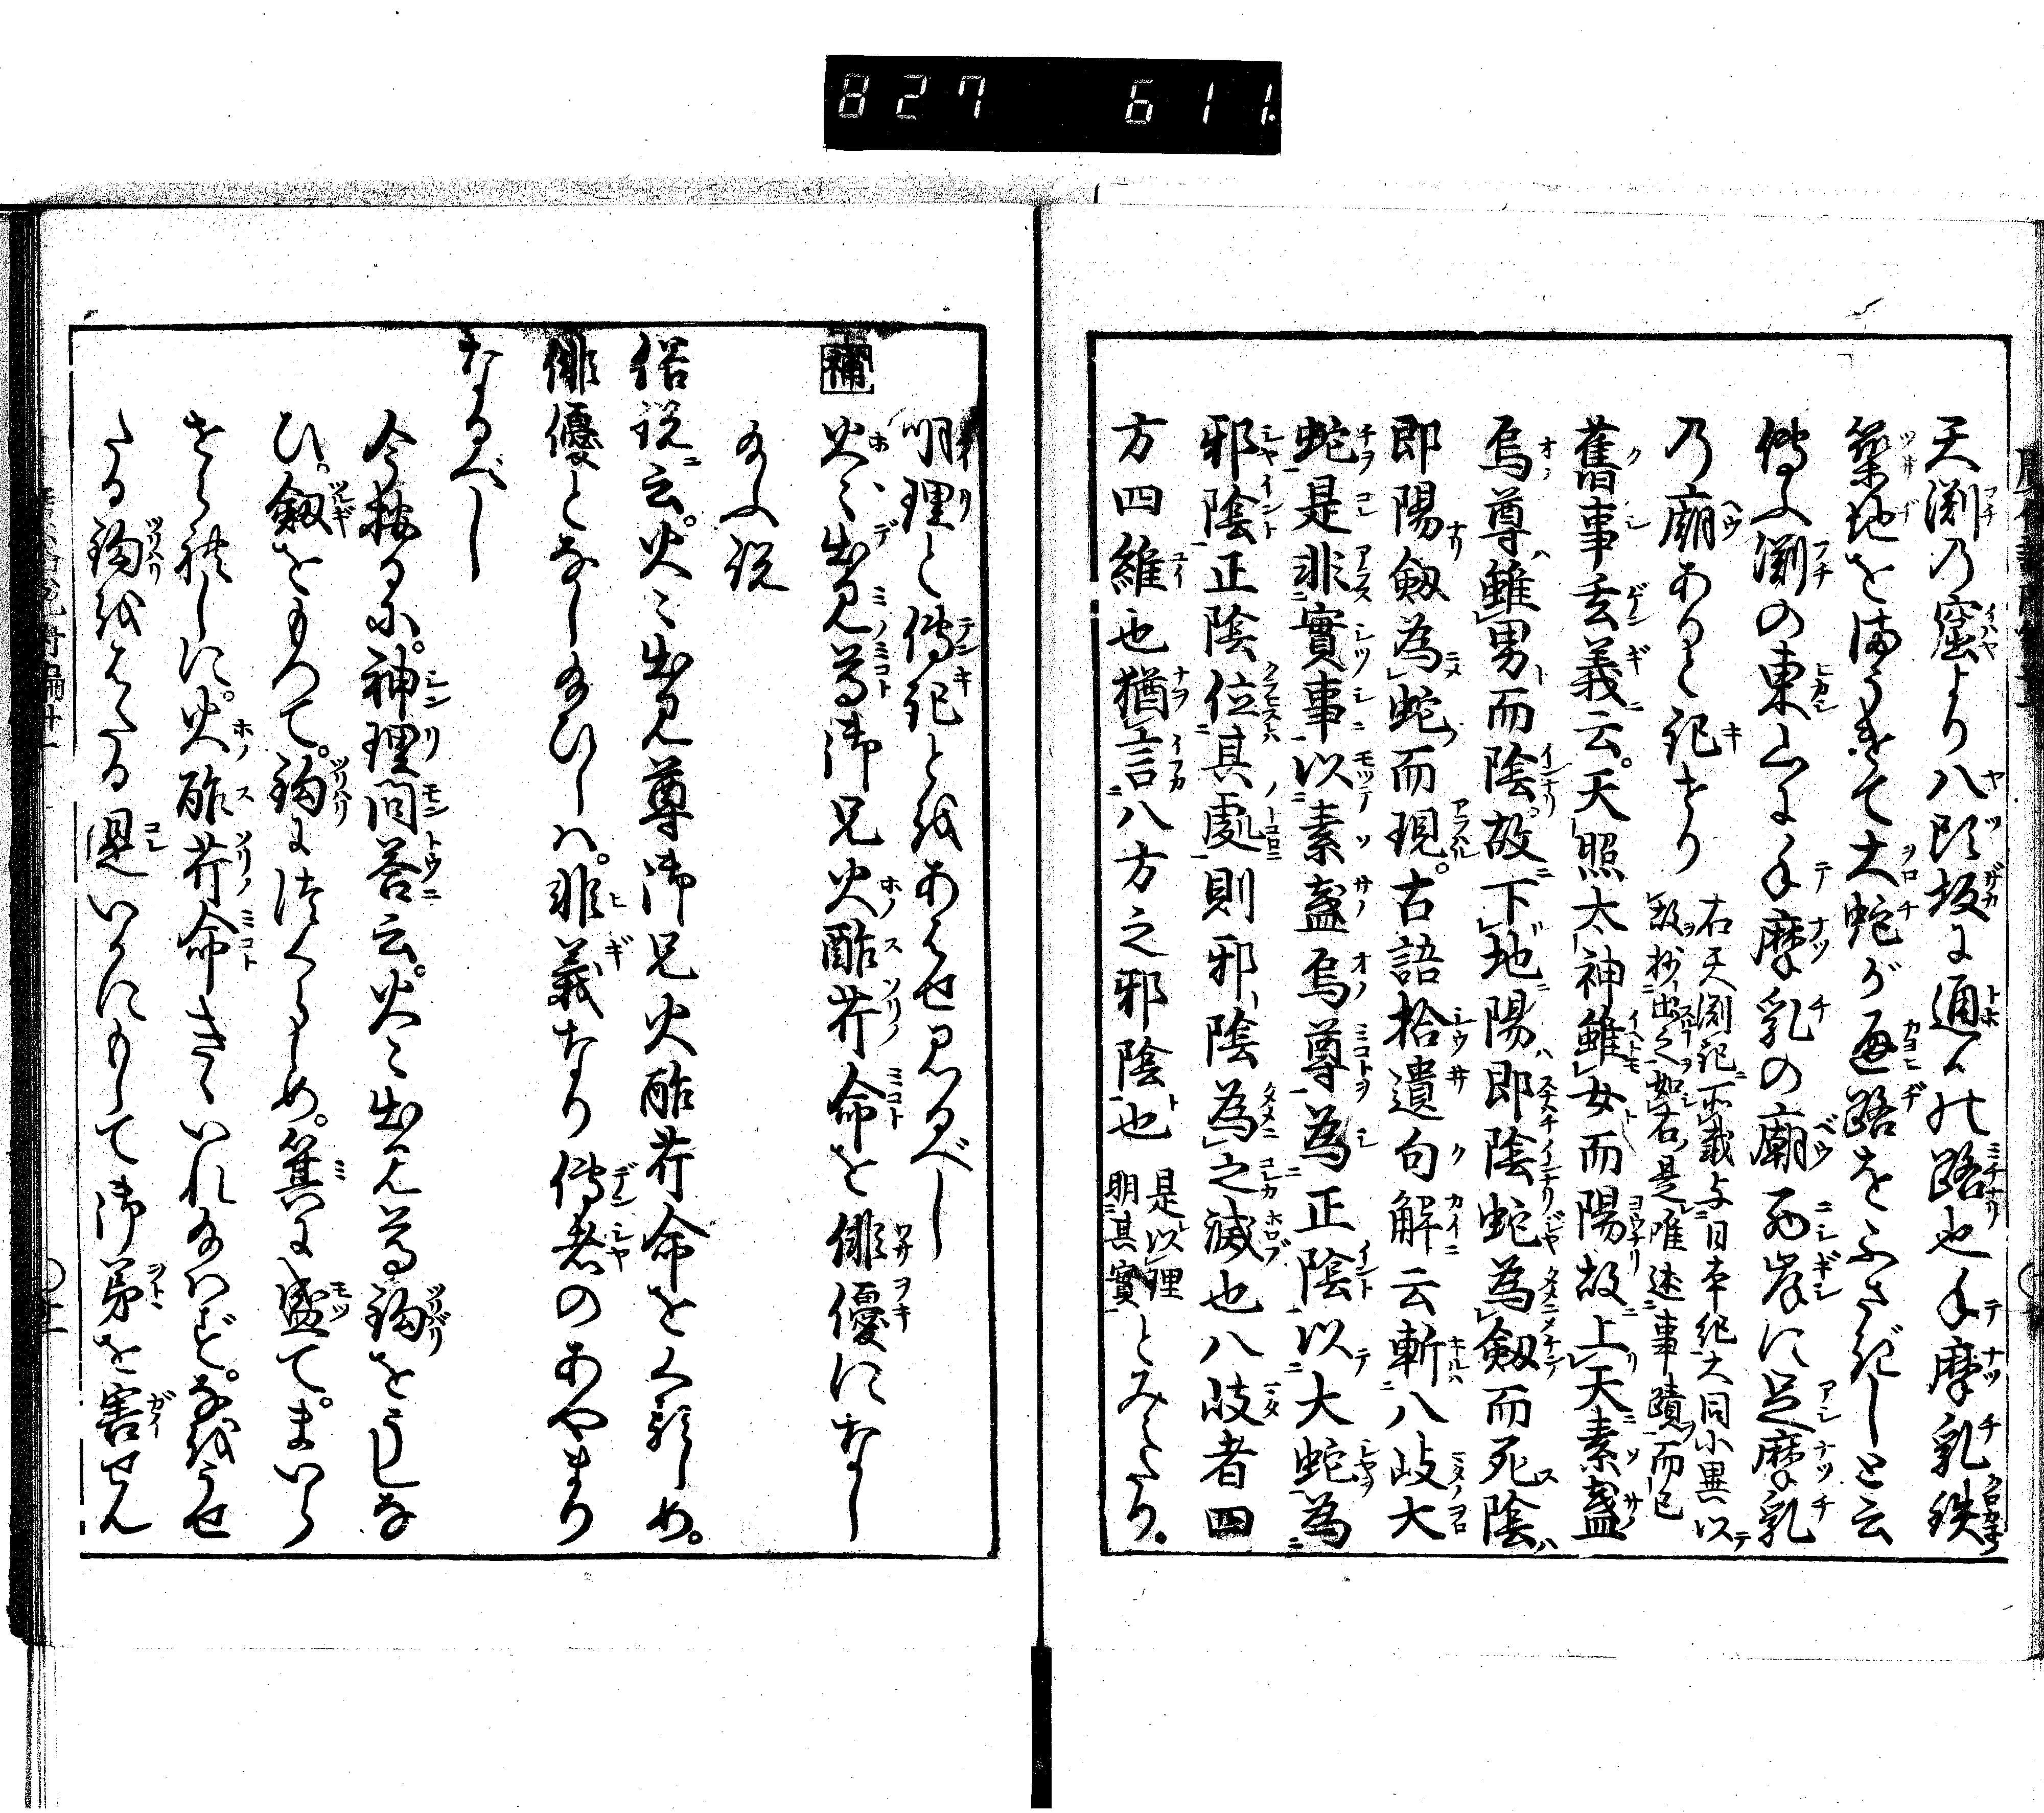 827 611.
天渕乃窟より八頭坂に通る路也手摩乳鉄
築地をまうけて大蛇が通路をふさぎしと云
傳ふ渕の東山に手摩乳の廟西岸に足摩乳
乃廟あると記せり 右天渕記所載与日本紀大同小異以
致抄出之如右是唯述事蹟而已
舊事玄義云。天照太神雖女而陽故上天素盞
烏尊雖男而陰故下地陽即陰蛇為劔而死陰
即陽劔為蛇而現。古語拾遺句解云斬八岐大
蛇是非實事以素盞烏尊為正陰以大蛇為
邪陰正陰位其處則邪陰為之滅也八岐者四
方四維也猶言八方之邪陰也 是以理
明其實 とみえたり。
明理と傳記とをあはせ見るべし
補 火々出見尊御兄火酢芹命を俳優になし
給ふ説
俗説云。火々出見尊御兄火酢芹命をくるしめ。
俳優となし給ひしハ。非義なり傳者のあやまり
なるべし
今按るに。神理問答云。火々出見尊鈎をうしな
ひ。劔をもつて。鈎につくらしめ。箕に盛て。まいら
せられしに。火酢芹命きゝいれ給ハず。なをうせ
たる鈎をはたる是いかにもして御弟を害せん